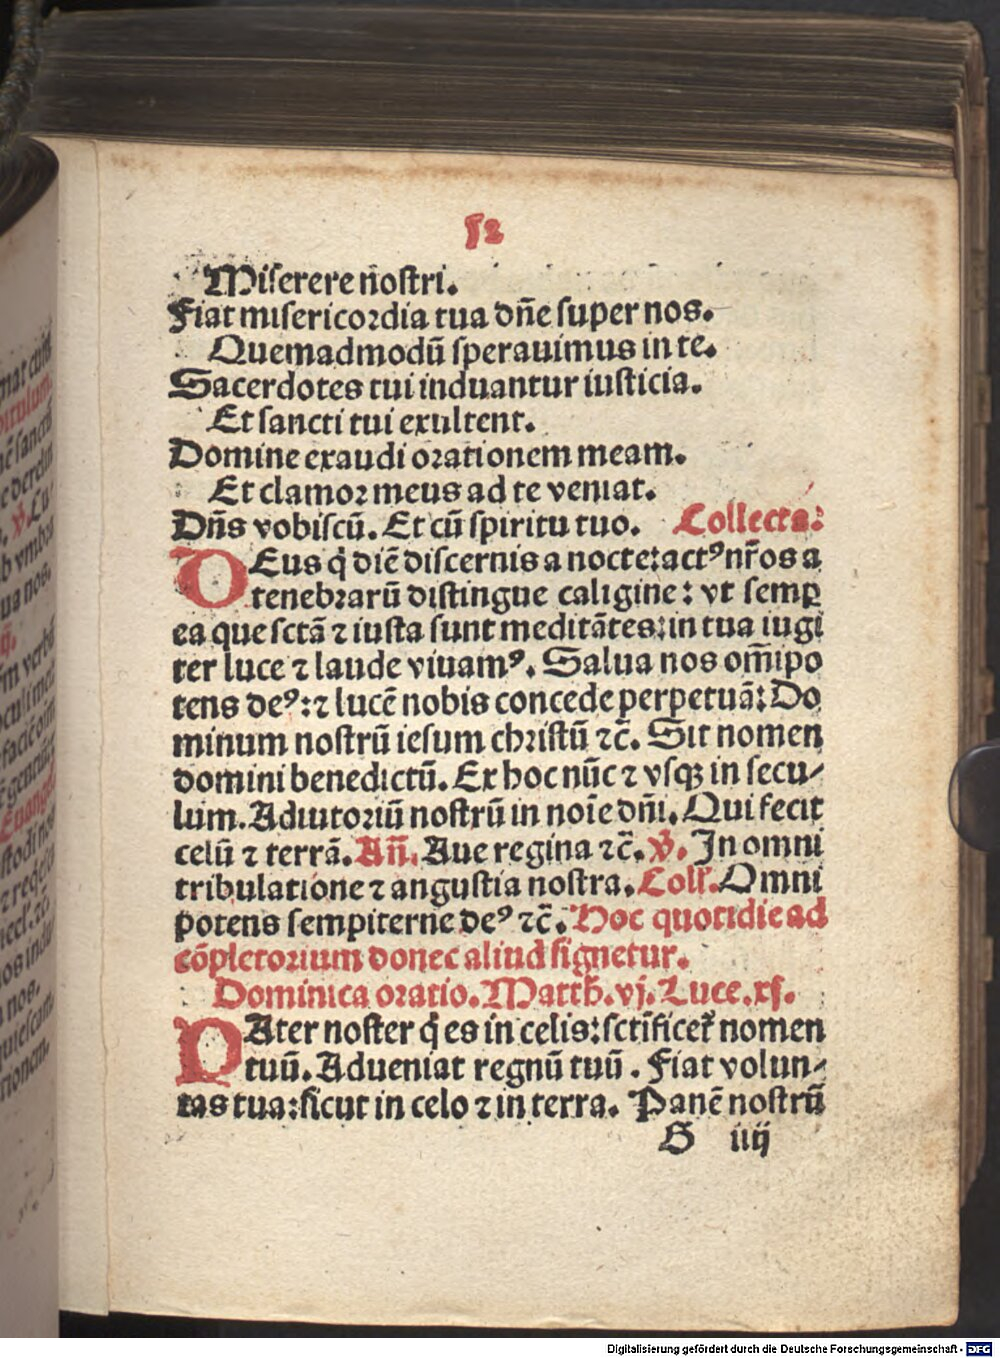 52
Miserere nostri.
Fiat misericordia tua dñe super nos.
Quemadmodū sperauimus in te.
Sacerdotes tui induantur iusticia.
Et sancti tui exultent.
Domine exaudi orationem meam.
Et clamor meus ad te veniat.
Dñs vobiscū. Et cū spiritu tuo. Collecta:
DEus q̄ diē discernis a nocte: actꝰ nr̄os a
tenebrarū distingue caligine: vt semꝑ
ea que sctā ⁊ iusta sunt meditātes: in tua iugi
ter luce ⁊ laude viuamꝰ. Salua nos om̄ipo
tens deꝰ: ⁊ lucē nobis concede perpetuā: Do
minum nostrū iesum christū ⁊c̄. Sit nomen
domini benedictū. Ex hoc nūc ⁊ vsqꝫ in secu⸗
lum. Adiutoriū nostrū in noīe dñi. Qui fecit
celū ⁊ terrā. Añ. Aue regina ⁊c̄. V̄. In omni
tribulatione ⁊ angustia nostra. Coll̄. Omni
potens sempiterne deꝰ ⁊c̄. Hoc quotidie ad
cōpletorium donec aliud signetur.
Dominica oratio. Matth̄. vj. Luce. xj.
PAter noster q̄ es in celis: sctīficet᷑ nomen
tuū. Adueniat regnū tuū. Fiat volun⸗
tas tua: sicut in celo ⁊ in terra. Panē nostrū
G iiij
Digitalisierung gefördert durch die Deutsche Forschungsgemeinschaft - DFG